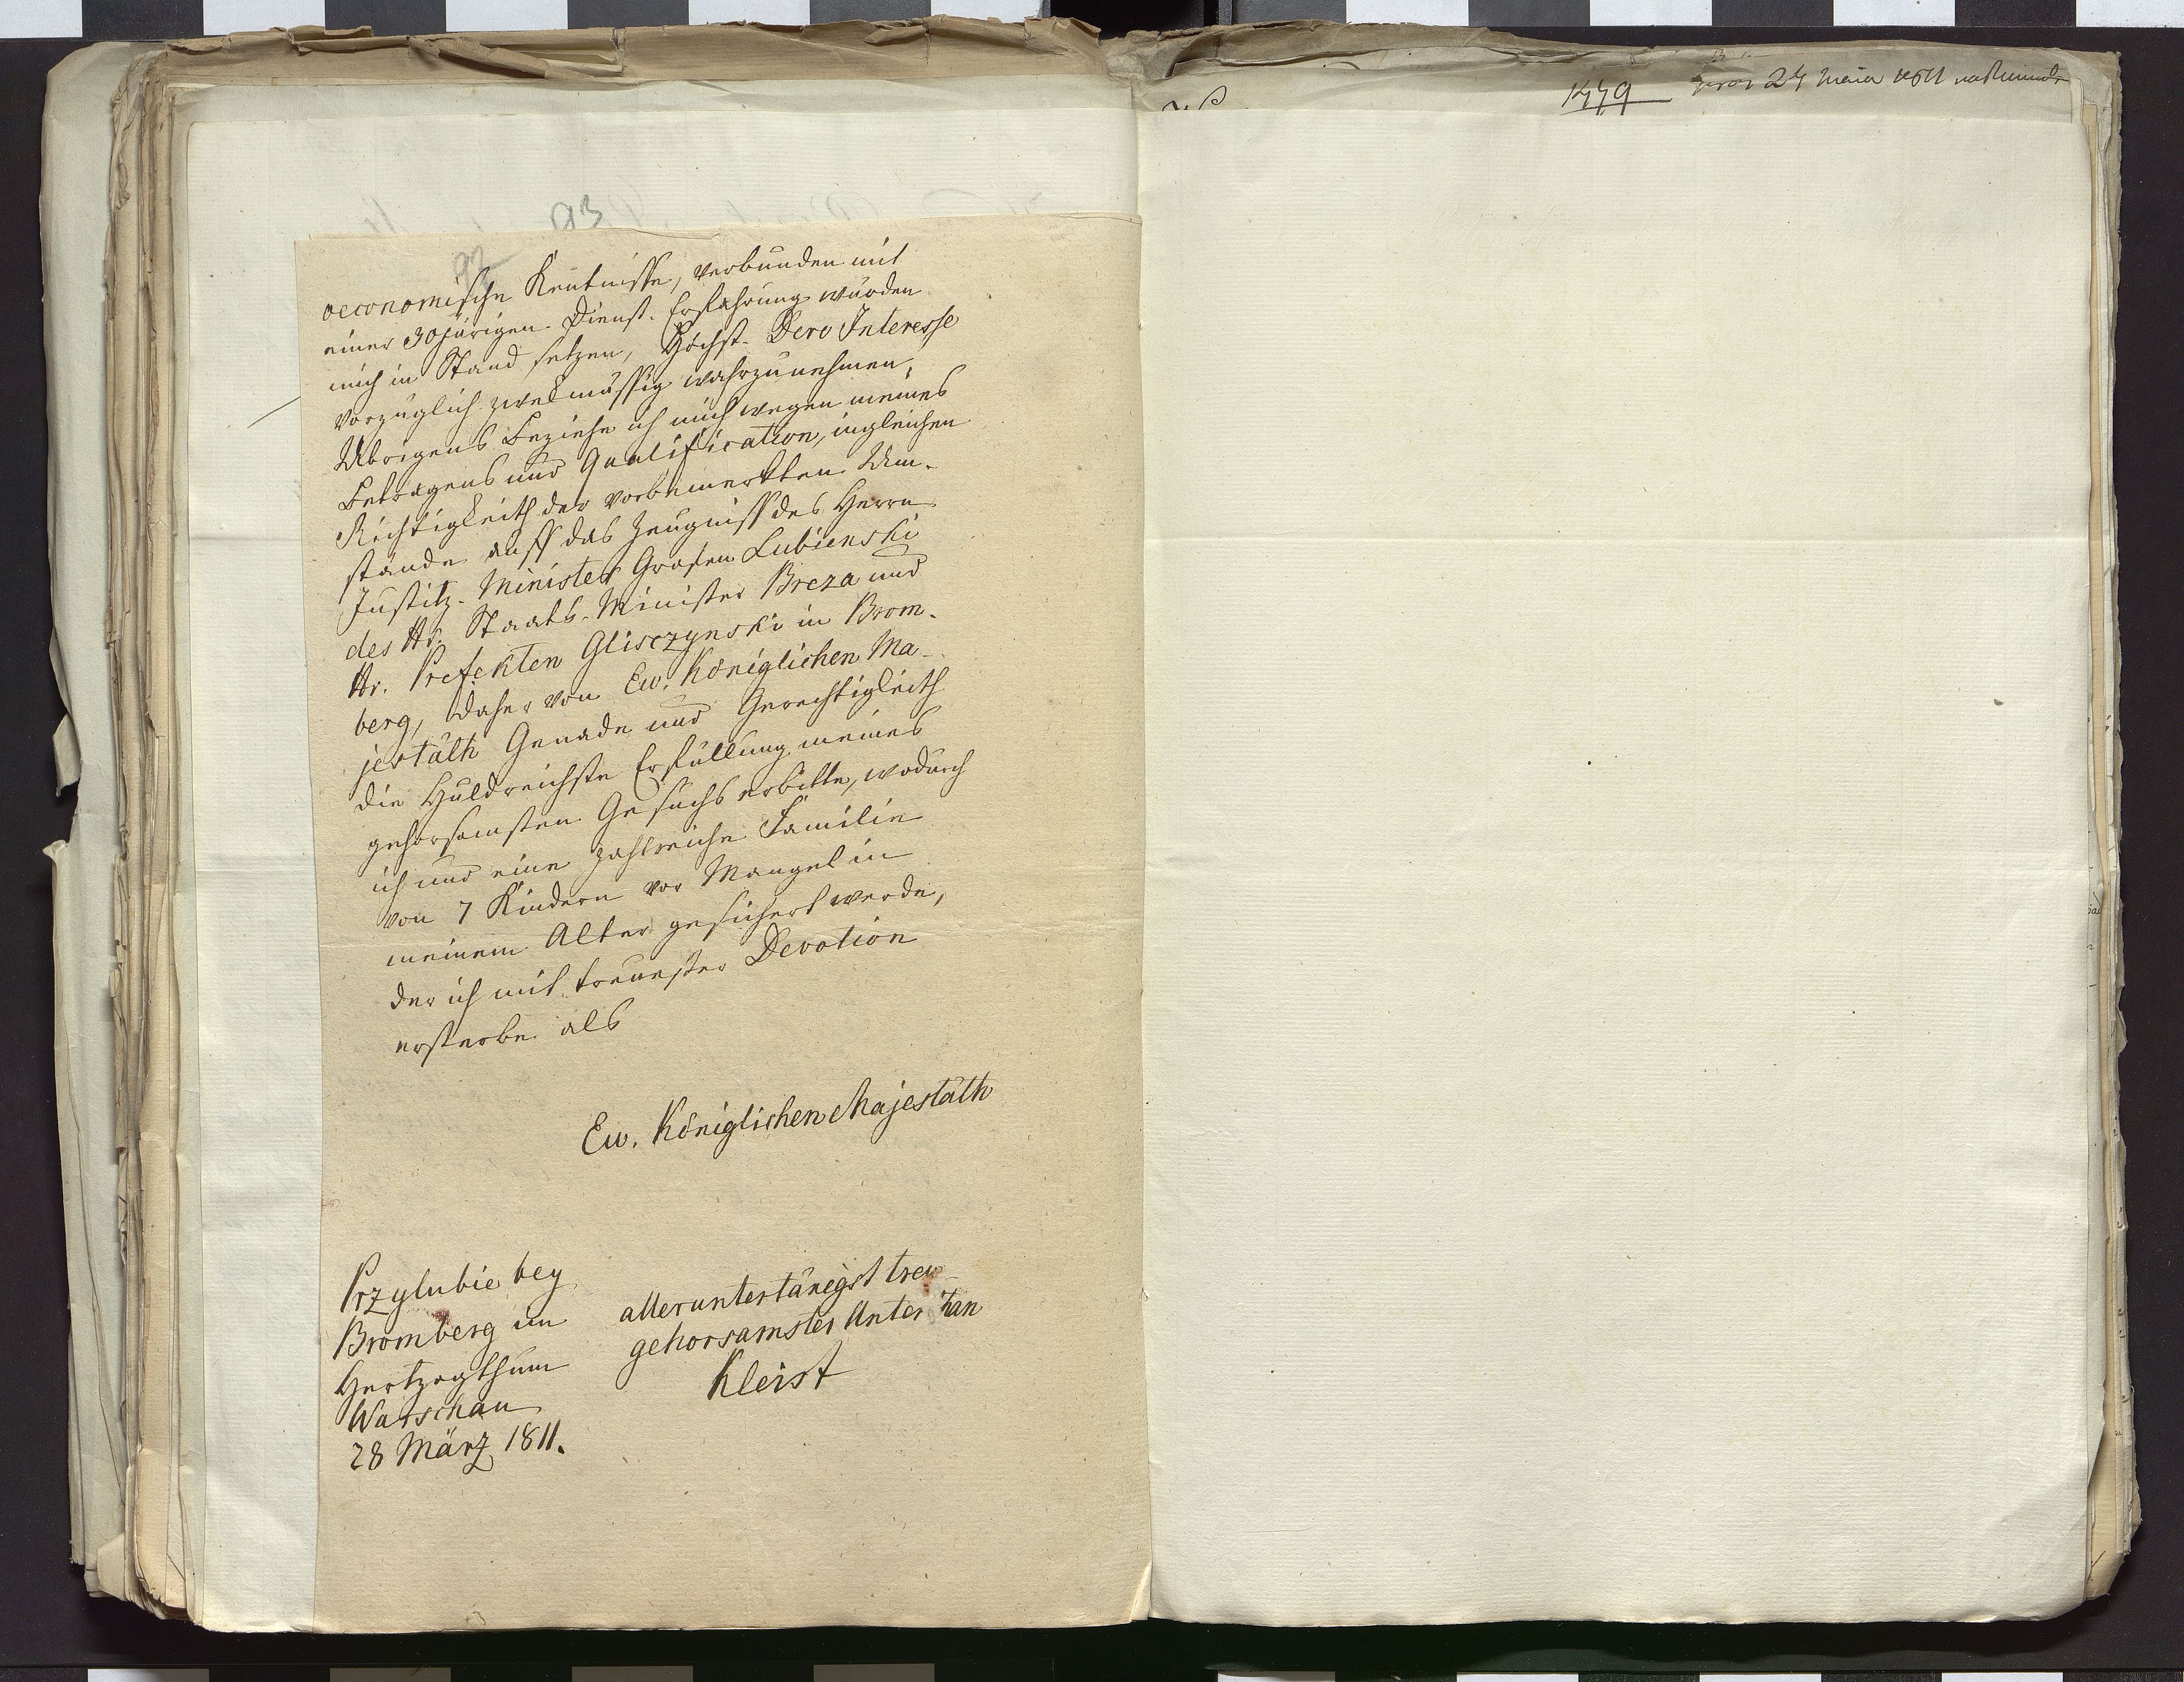 93
92
oeconomische Kentnisse, verbunden mit
einer 30järigen Dienst-Erfahrung würden
mich in Stand setzen, Höchst-Dero Interesse
vorzüglich zwekmässig wahrzunehmen,
Übrigens beziehe ich mich wegen meines
Betragens und Qualification, ingleichen
Richtigkeith der vorbemerkten Um-
stände auff das Zeugniss des Herrn
Justitz-Minister Grafen Lubienski
des Hr. Staats-Minister Breza und
Hr. Prefekten Glisczynski in Brom-
berg, daher von Ew. Königlichen Ma-
jestäth Genade und Gerechtigkeith
die Huldreichste Erfüllung meines
gehorsamsten Gesuchs erbitte, wodurch
ich und eine zahlreiche Familie
von 7 Kindern vor Mangel in
meinem Alter gesichert werde,
der ich mit treuester Devotion
ersterbe als
Ew. Königlichen Majestäth
alleruntertänigst treu
gehorsamster Untertan
Kleist
Przylubie bey
Bromberg im
Hertzogthum
Warschau
28 März 1811.
1479
24 Maia 1811